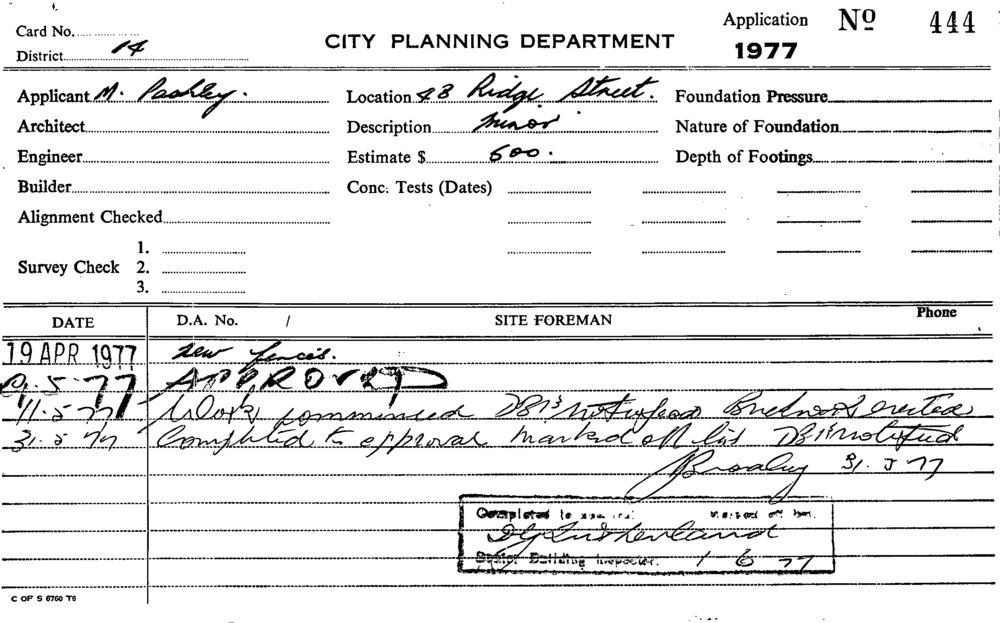 Card No.
Application No 444
CITY PLANNING DEPARTMENT
District 14
1977
Applicant M. Pashley. Location 48 Ridge Street. Foundation Pressure
Architect Description minor Nature of Foundation
Engineer Estimate $ 500. Depth of Footings
Builder Conc. Tests (Dates)
Alignment Checked
1.
Survey Check 2.
3.
DATE D.A. No. / SITE FOREMAN Phone
19 APR 1977 new fences.
9. 5. 77 APPROVED
11. 5. 77 Work commenced Brickwork erected
31. 5. 77 Completed to approval marked off list notified
31. 5 77
Completed to marked off
Sutherland
Senior Building Inspector. 1 6 77
C OF S 6760 T6